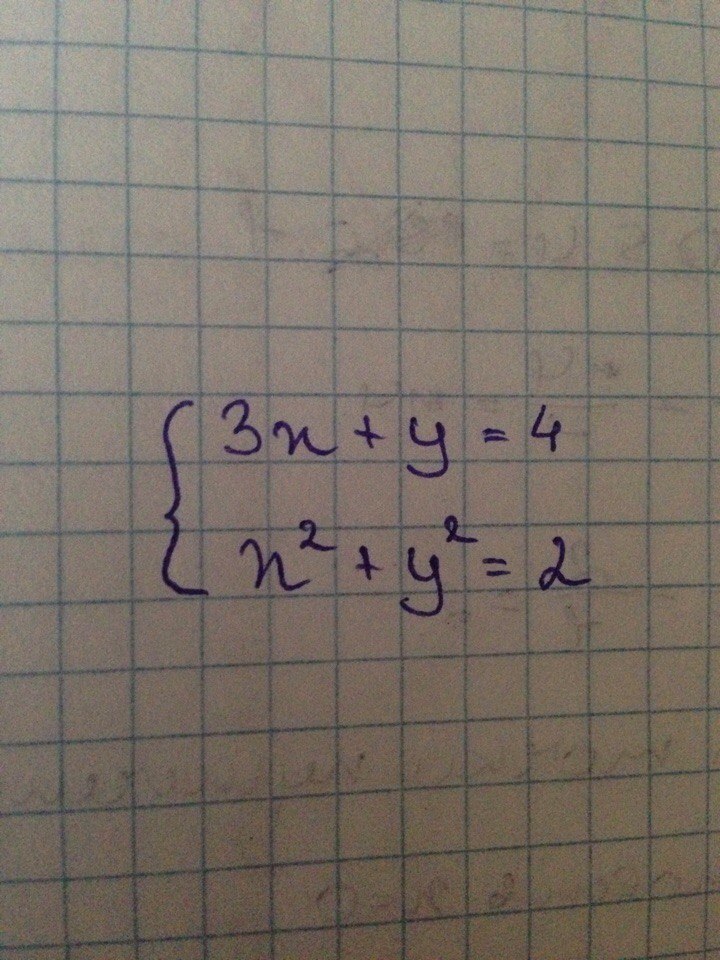 3x + y = 4
x² + y² = 2